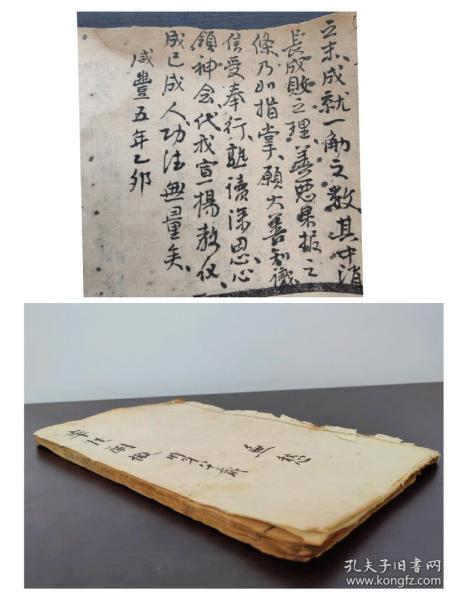 之末成就一劫之數其中消
長成敗之理善惡果报之
條乃如指掌願大善知識
信受奉行熟读深思心
領神会代我宣揚教化
成已成人功法無量矣
咸豐五年乙卯
無愁
孔夫子旧书网
www.kongfz.com